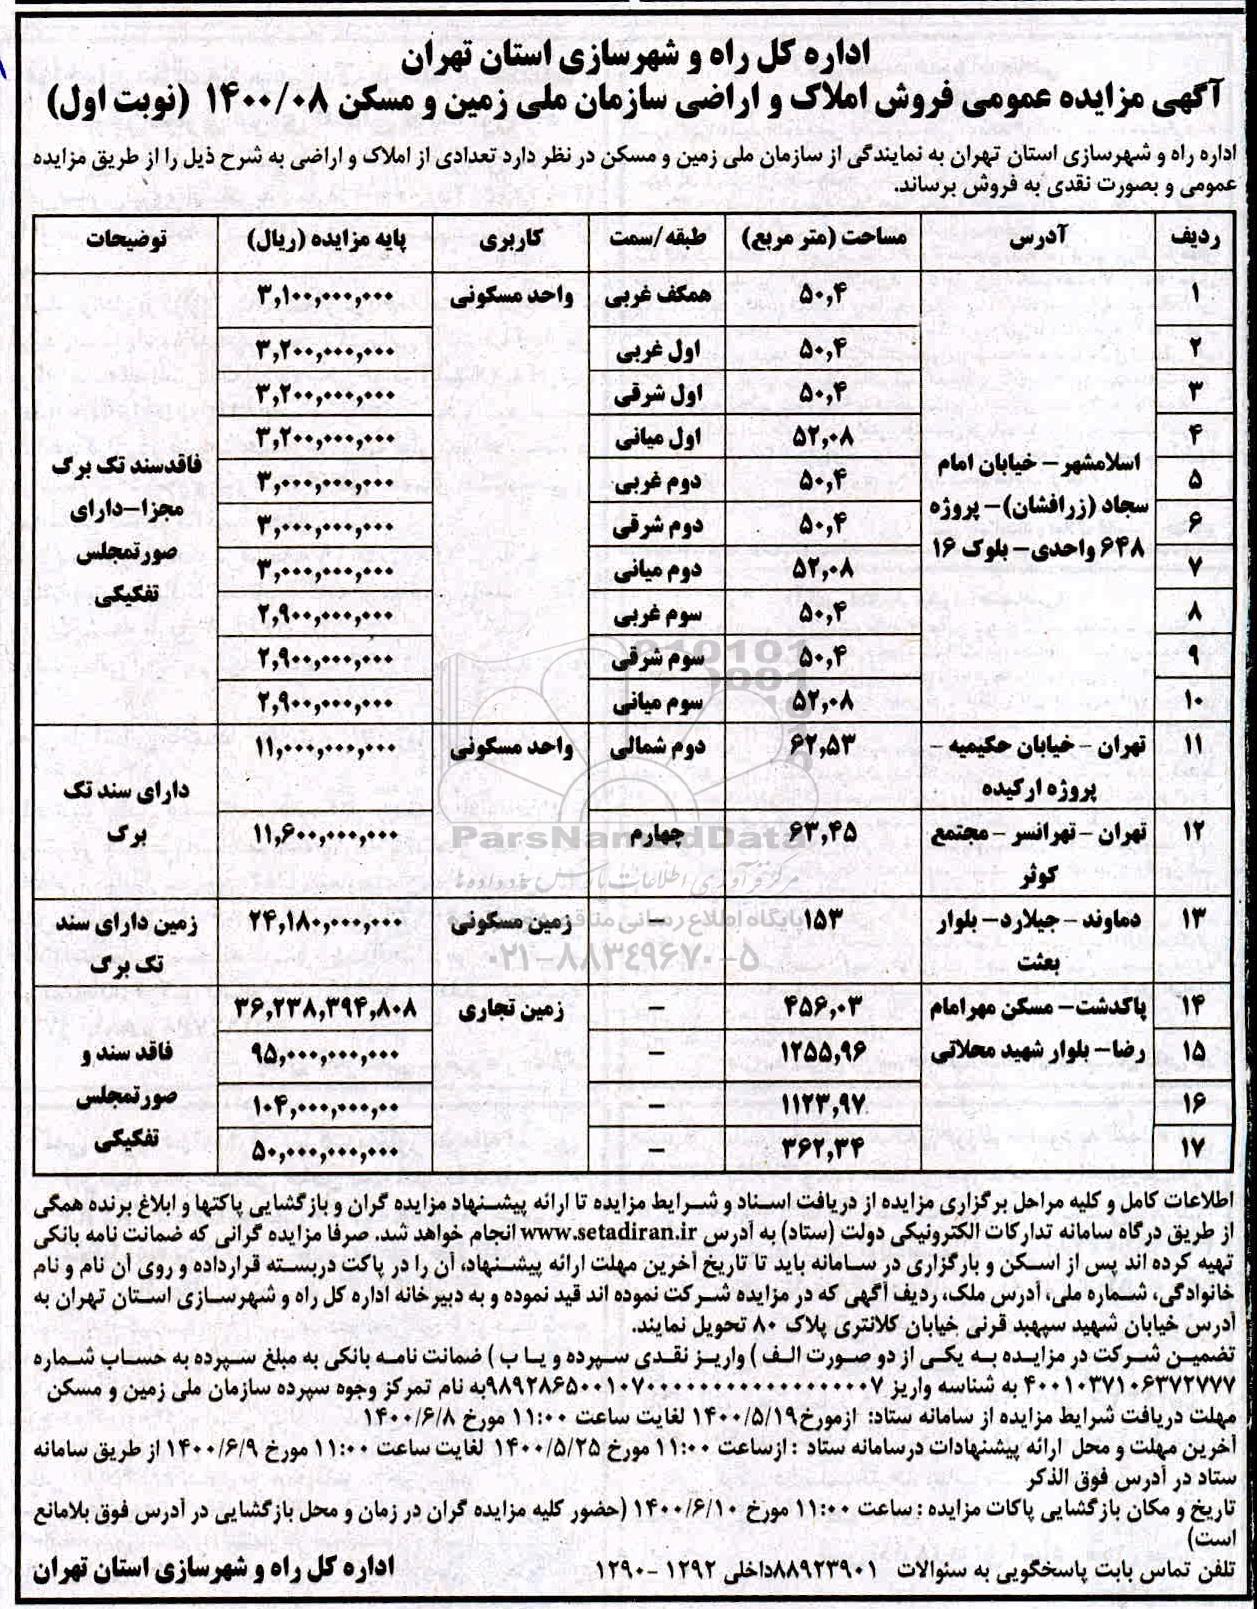 اداره کل راه و شهرسازی استان تهران
آگهی مزایده عمومی فروش املاک و اراضی سازمان ملی زمین و مسکن ۱۴۰۰/۰۸ (نوبت اول)
اداره راه و شهرسازی استان تهران به نمایندگی از سازمان ملی زمین و مسکن در نظر دارد تعدادی از املاک و اراضی به شرح ذیل را از طریق مزایده
عمومی و بصورت نقدی به فروش برساند.
ردیف آدرس مساحت (متر مربع) طبقه/سمت کاربری پایه مزایده (ریال) توضیحات
۱ ۵۰,۴ همکف غربی واحد مسکونی ۳,۱۰۰,۰۰۰,۰۰۰
۲ ۵۰,۴ اول غربی ۳,۲۰۰,۰۰۰,۰۰۰
۳ ۵۰,۴ اول شرقی ۳,۲۰۰,۰۰۰,۰۰۰
۴ ۵۲,۰۸ اول میانی ۳,۲۰۰,۰۰۰,۰۰۰
اسلامشهر – خیابان امام فاقدسند تک برگ
۵ ۵۰,۴ دوم غربی ۳,۰۰۰,۰۰۰,۰۰۰
سجاد (زرافشان) – پروژه مجزا–دارای
۶ ۵۰,۴ دوم شرقی ۳,۰۰۰,۰۰۰,۰۰۰
۶۴۸ واحدی – بلوک ۱۶ صورتمجلس
۷ ۵۲,۰۸ دوم میانی ۳,۰۰۰,۰۰۰,۰۰۰
تفکیکی
۸ ۵۰,۴ سوم غربی ۲,۹۰۰,۰۰۰,۰۰۰
۹ ۵۰,۴ سوم شرقی ۲,۹۰۰,۰۰۰,۰۰۰
۱۰ ۵۲,۰۸ سوم میانی ۲,۹۰۰,۰۰۰,۰۰۰
۱۱ تهران – خیابان حکیمیه – ۶۲,۵۳ دوم شمالی واحد مسکونی ۱۱,۰۰۰,۰۰۰,۰۰۰
پروژه ارکیده دارای سند تک
۱۲ تهران – تهرانسر – مجتمع ۶۳,۴۵ چهارم ۱۱,۶۰۰,۰۰۰,۰۰۰ برگ
کوثر
۱۳ دماوند – جیلارد – بلوار ۱۵۳ – زمین مسکونی ۲۴,۱۸۰,۰۰۰,۰۰۰ زمین دارای سند
بعثت تک برگ
۱۴ پاکدشت – مسکن مهرامام ۴۵۶,۰۳ – زمین تجاری ۳۶,۲۳۸,۳۹۴,۸۰۸
۱۵ رضا – بلوار شهید محلاتی ۱۲۵۵,۹۶ – ۹۵,۰۰۰,۰۰۰,۰۰۰ فاقد سند و
۱۶ ۱۱۲۳,۹۷ – ۱۰۴,۰۰۰,۰۰۰,۰۰ صورتمجلس
۱۷ ۳۶۲,۳۴ – ۵۰,۰۰۰,۰۰۰,۰۰۰ تفکیکی
ParsNamadData
مرکز فرآوری اطلاعات پارس نماد داده ها
۰۲۱–۸۸۳۴۹۶۷۰–۵
اطلاعات کامل و کلیه مراحل برگزاری مزایده از دریافت اسناد و شرایط مزایده تا ارائه پیشنهاد مزایده گران و بازگشایی پاکتها و ابلاغ برنده همگی
از طریق درگاه سامانه تدارکات الکترونیکی دولت (ستاد) به آدرس www.setadiran.ir انجام خواهد شد. صرفا مزایده گرانی که ضمانت نامه بانکی
تهیه کرده اند پس از اسکن و بارگزاری در سامانه باید تا تاریخ آخرین مهلت ارائه پیشنهاد، آن را در پاکت دربسته قرارداده و روی آن نام و نام
خانوادگی، شماره ملی، آدرس ملک، ردیف آگهی که در مزایده شرکت نموده اند قید نموده و به دبیرخانه اداره کل راه و شهرسازی استان تهران به
آدرس خیابان شهید سپهبد قرنی خیابان کلانتری پلاک ۸۰ تحویل نمایند.
تضمین شرکت در مزایده به یکی از دو صورت الف ) واریز نقدی سپرده و یا ب ) ضمانت نامه بانکی به مبلغ سپرده به حساب شماره
۴۰۰۱۰۳۷۱۰۶۳۷۲۷۷۷ به شناسه واریز به نام تمرکز وجوه سپرده سازمان ملی زمین و مسکن
مهلت دریافت شرایط مزایده از سامانه ستاد: ازمورخ۱۴۰۰/۵/۱۹ لغایت ساعت ۱۱:۰۰ مورخ ۱۴۰۰/۶/۸
آخرین مهلت و محل ارائه پیشنهادات درسامانه ستاد : ازساعت ۱۱:۰۰ مورخ ۱۴۰۰/۵/۲۵ لغایت ساعت ۱۱:۰۰ مورخ ۱۴۰۰/۶/۹ از طریق سامانه
ستاد در آدرس فوق الذکر
تاریخ و مکان بازگشایی پاکات مزایده : ساعت ۱۱:۰۰ مورخ ۱۴۰۰/۶/۱۰ (حضور کلیه مزایده گران در زمان و محل بازگشایی در آدرس فوق بلامانع
است)
تلفن تماس بابت پاسخگویی به سئوالات ۸۸۹۲۳۹۰۱داخلی ۱۲۹۲ –۱۲۹۰ اداره کل راه و شهرسازی استان تهران